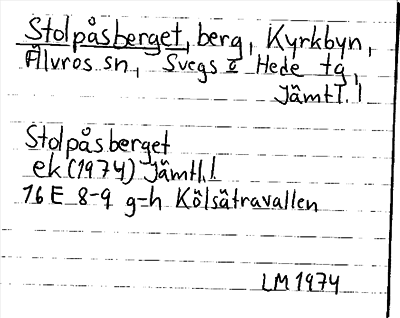 Stolpåsberget, berg, Kyrkbyn,
Älvros sn, Svegs o Hede tg,
Jämtl. l
Stolpåsberget
ek (1974) Jämtl. l
16 E 8-9 g-h Kölsätravallen
LM 1974